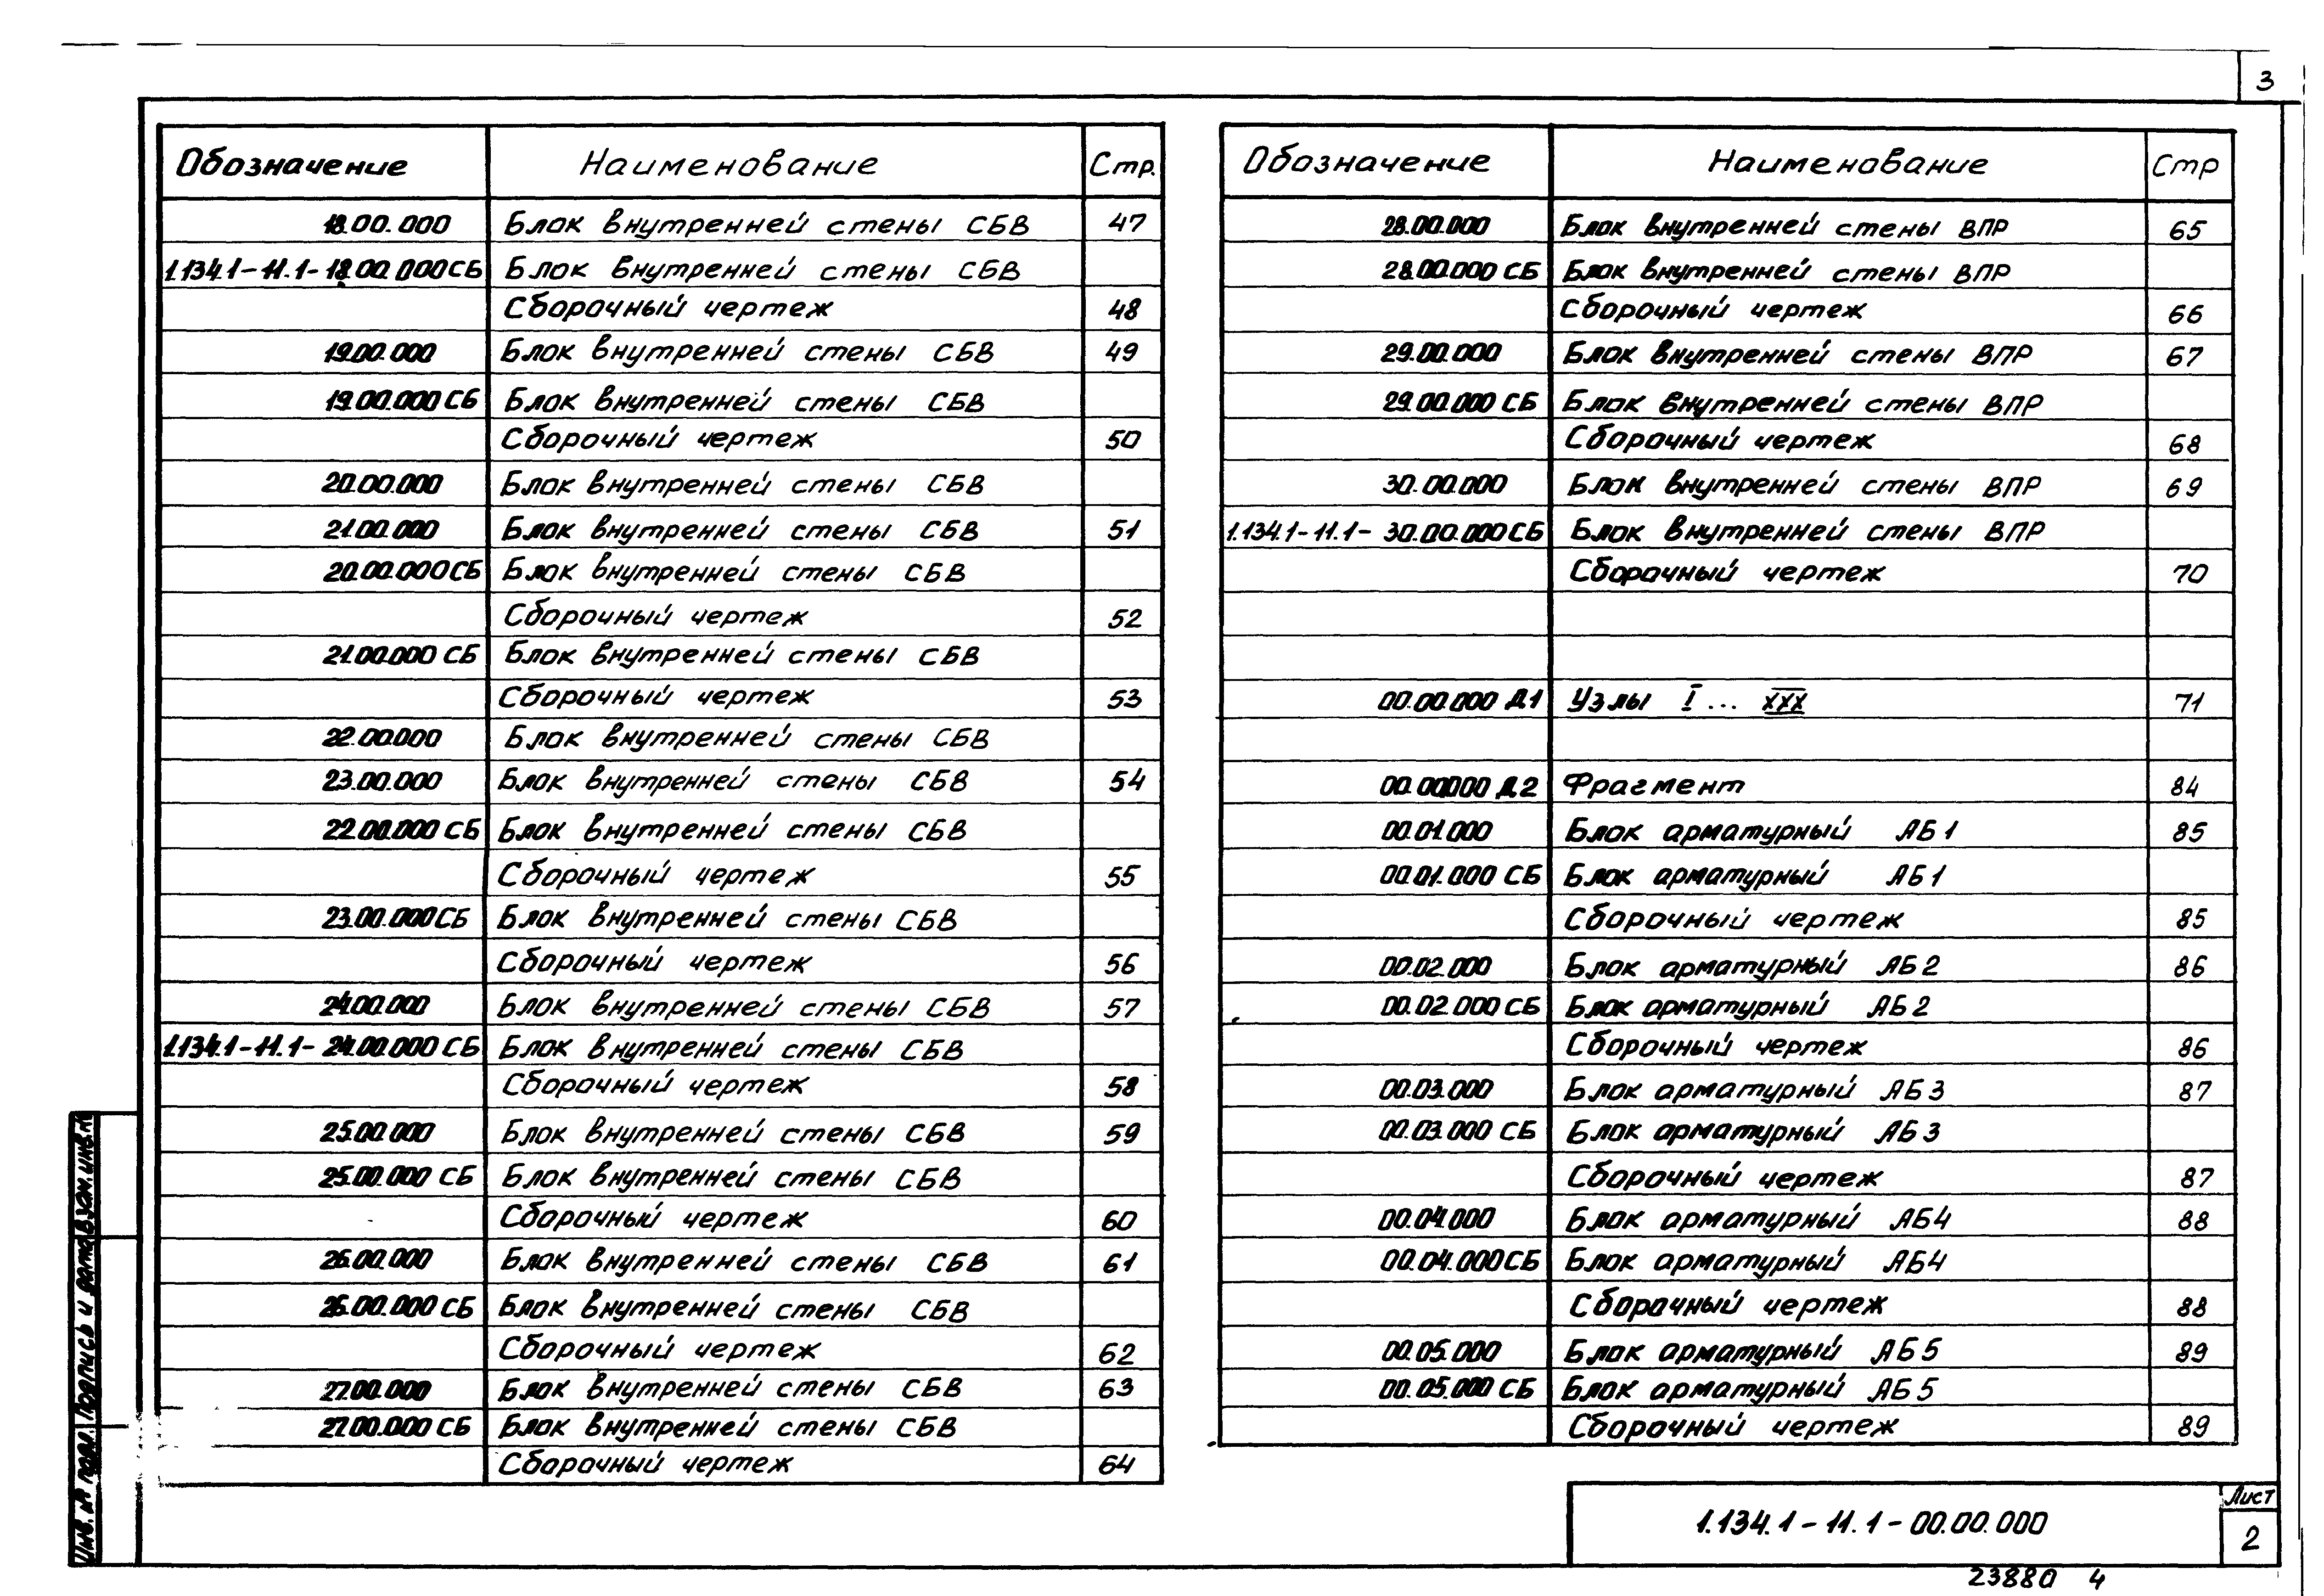 3
Обозначение Наименование Стр.
18.00.000 Блок внутренней стены СБВ 47
1.134.1-11.1-18.00.000СБ Блок внутренней стены СБВ
Сборочный чертеж 48
19.00.000 Блок внутренней стены СБВ 49
19.00.000СБ Блок внутренней стены СБВ
Сборочный чертеж 50
20.00.000 Блок внутренней стены СБВ
21.00.000 Блок внутренней стены СБВ 51
20.00.000СБ Блок внутренней стены СБВ
Сборочный чертеж 52
21.00.000 СБ Блок внутренней стены СБВ
Сборочный чертеж 53
22.00.000 Блок внутренней стены СБВ
23.00.000 Блок внутренней стены СБВ 54
22.00.000 СБ Блок внутренней стены СБВ
Сборочный чертеж 55
23.00.000СБ Блок внутренней стены СБВ
Сборочный чертеж 56
24.00.000 Блок внутренней стены СБВ 57
1.134.1-11.1-24.00.000 СБ Блок внутренней стены СБВ
Сборочный чертеж 58
25.00.000 Блок внутренней стены СБВ 59
25.00.000 СБ Блок внутренней стены СБВ
Сборочный чертеж 60
26.00.000 Блок внутренней стены СБВ 61
26.00.000 СБ Блок внутренней стены СБВ
Сборочный чертеж 62
27.00.000 Блок внутренней стены СБВ 63
27.00.000 СБ Блок внутренней стены СБВ
Сборочный чертеж 64
Обозначение Наименование Стр
28.00.000 Блок внутренней стены ВПР 65
28.00.000 СБ Блок внутренней стены ВПР
Сборочный чертеж 66
29.00.000 Блок внутренней стены ВПР 67
29.00.000 СБ Блок внутренней стены ВПР
Сборочный чертеж 68
30.00.000 Блок внутренней стены ВПР 69
1.134.1-11.1-30.00.000СБ Блок внутренней стены ВПР
Сборочный чертеж 70
00.00.000 Д1 Узлы I ... XXX 71
00.00000 Д2 Фрагмент 84
00.01.000 Блок арматурный АБ1 85
00.01.000 СБ Блок арматурный АБ1
Сборочный чертеж 85
00.02.000 Блок арматурный АБ2 86
00.02.000 СБ Блок арматурный АБ2
Сборочный чертеж 86
00.03.000 Блок арматурный АБ3 87
00.03.000 СБ Блок арматурный АБ3
Сборочный чертеж 87
00.04.000 Блок арматурный АБ4 88
00.04.000СБ Блок арматурный АБ4
Сборочный чертеж 88
00.05.000 Блок арматурный АБ5 89
00.05.000 СБ Блок арматурный АБ5
Сборочный чертеж 89
Инв. № подл. Подпись и дата Взам. инв.№
1.134.1-11.1-00.00.000
Лист
2
23880 4